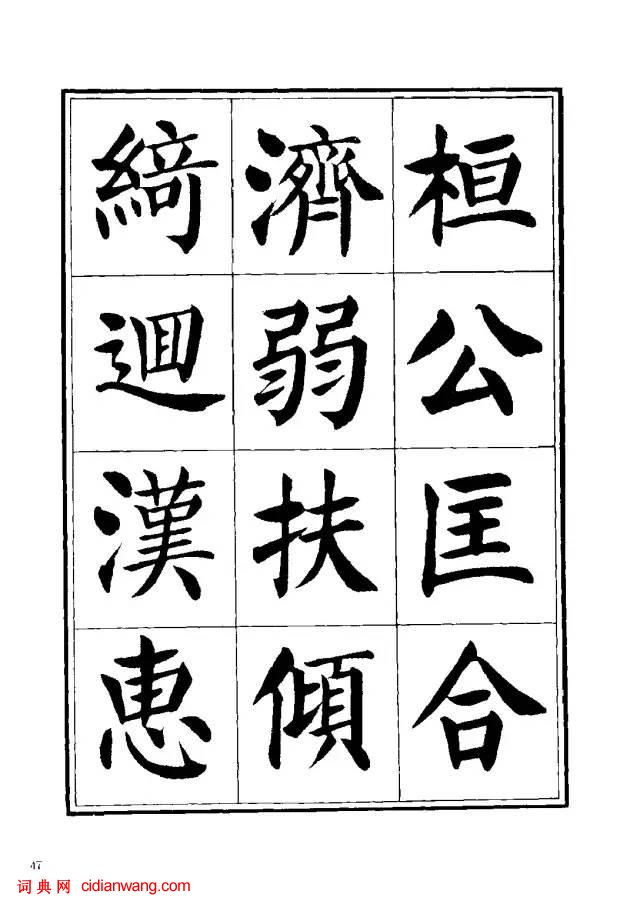 桓公匡合
濟弱扶傾
綺迴漢惠
47
词典网 cidianwang.com